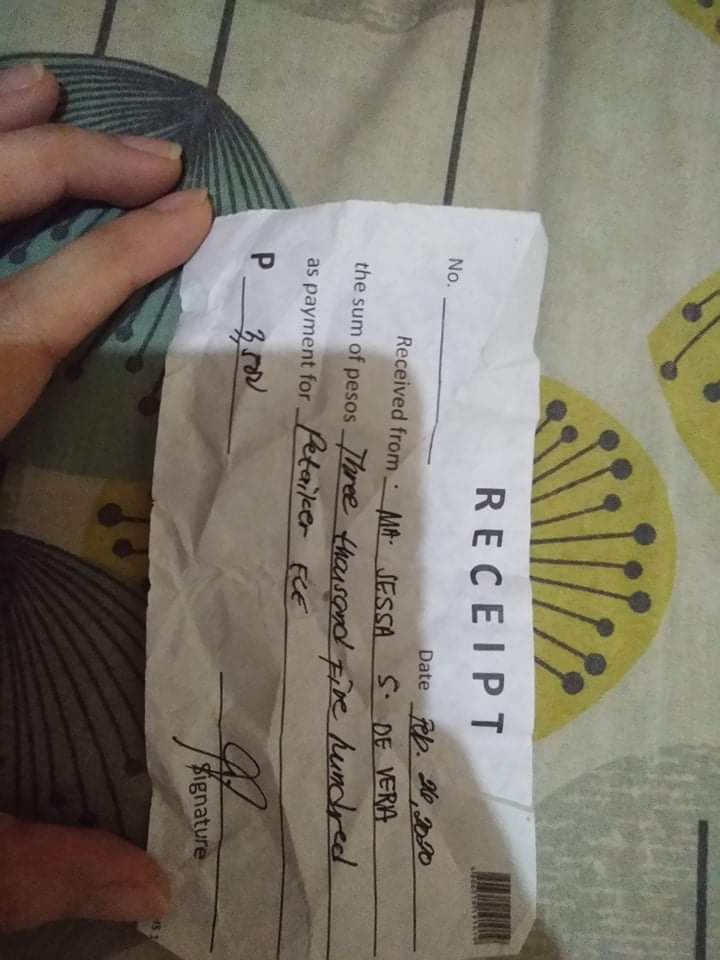 RECEIPT
No.
Date Feb. 26, 2020
Received from MA. JESSA S. DE VERA
the sum of pesos Three thousand Five hundred
as payment for Retailer FEE
P 3,500
Signature